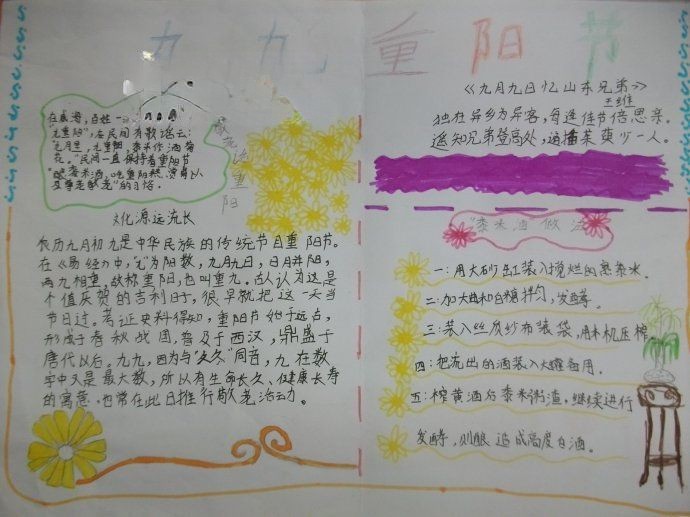 九九重阳节
九重阳"，在民间有歌谣云：
"九月里，九重阳，黍米作酒菊
花。"民间一直保持着重阳节
"喝黍米酒，吃重阳糕，赏菊以
及尊老敬老"的习俗。
重阳
文化源远流长
农历九月初九是中华民族的传统节日重阳节。
在《易经》中，"九"为阳数，九月九日，日月并阳，
两九相重，故称重阳，也叫重九。古人认为这是
个值庆贺的吉利日子，很早就把这一天当
节日过。考证史料得知，重阳节始于远古，
形成于春秋战国，普及于西汉，鼎盛于
唐代以后。九九，因为与"久久"同音，九在数
字中又是最大数，所以有生命长久、健康长寿
的寓意，也常在此日推行敬老活动。
《九月九日忆山东兄弟》
王维
独在异乡为异客，每逢佳节倍思亲。
遥知兄弟登高处，遍插茱萸少一人。
"黍米酒做法"
一：用大砂缸装入搅烂的熟黍米。
二：加大曲和白糖拌匀，发酵。
三：装入丝质纱布装袋，用木机压榨。
四：把流出的酒装入大罐备用。
五：榨黄酒后黍米粥渣，继续进行
发酵，则酿造成高度白酒。